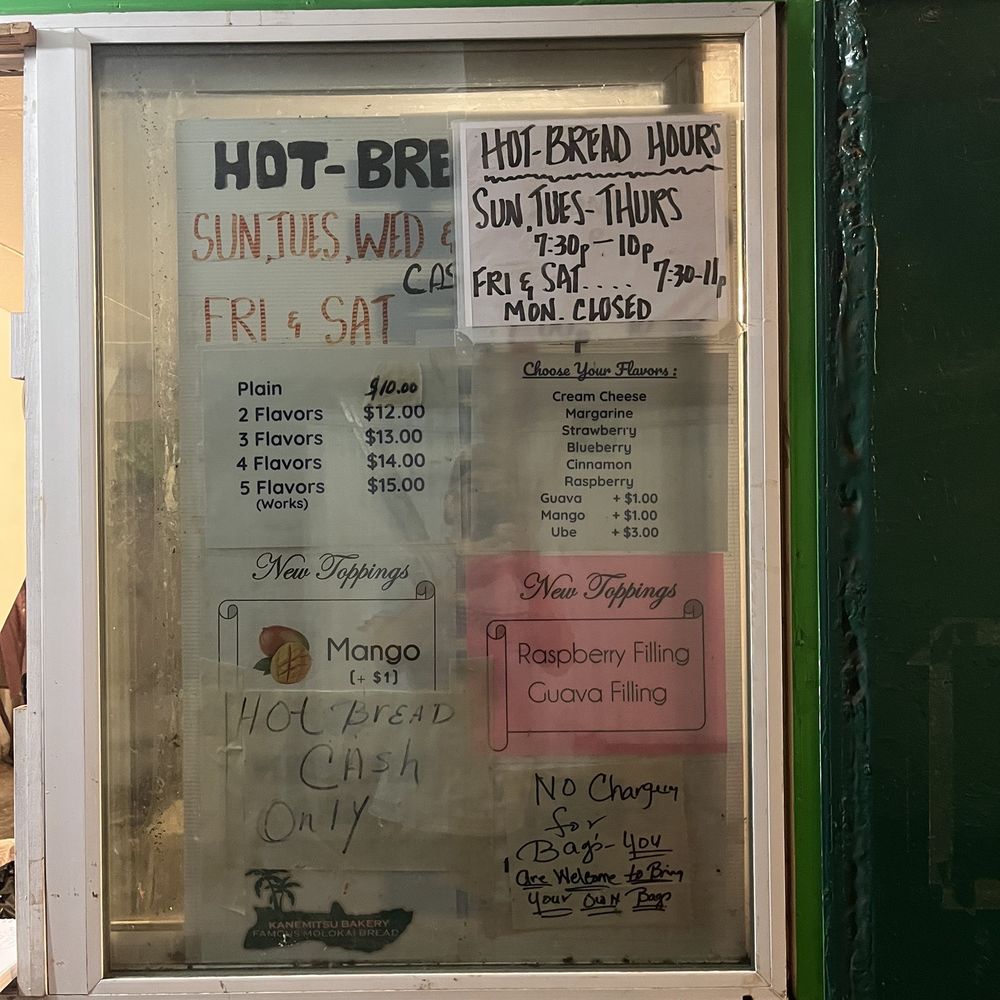 HOT-BRE
SUN, TUES, WED &
CAS
FRI & SAT
HOT-BREAD HOURS
SUN, TUES-THURS
7:30p-10p
FRI & SAT.... 7:30-11p
MON. CLOSED
Plain $10.00
2 Flavors $12.00
3 Flavors $13.00
4 Flavors $14.00
5 Flavors $15.00
(Works)
Choose Your Flavors:
Cream Cheese
Margarine
Strawberry
Blueberry
Cinnamon
Raspberry
Guava + $1.00
Mango + $1.00
Ube + $3.00
New Toppings
Mango
(+ $1)
New Toppings
Raspberry Filling
Guava Filling
HOt BreAD
CAsh
Only
No Charging
for
Bags- You
are Welcome to Bring
Your Own Bags
KANEMITSU BAKERY
FAMOUS MOLOKAI BREAD